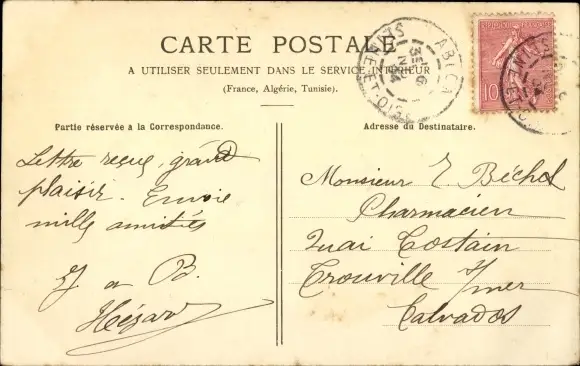 CARTE POSTALE
A UTILISER SEULEMENT DANS LE SERVICE INTÉRIEUR
(France, Algérie, Tunisie).
Partie réservée à la Correspondance.
Lettre reçue, grand
plaisir. Envoie
mille amitiés
B.
Adresse du Destinataire.
Monsieur E. Béchet
Pharmacien
Quai Costain
Trouville s/mer
Calvados
10